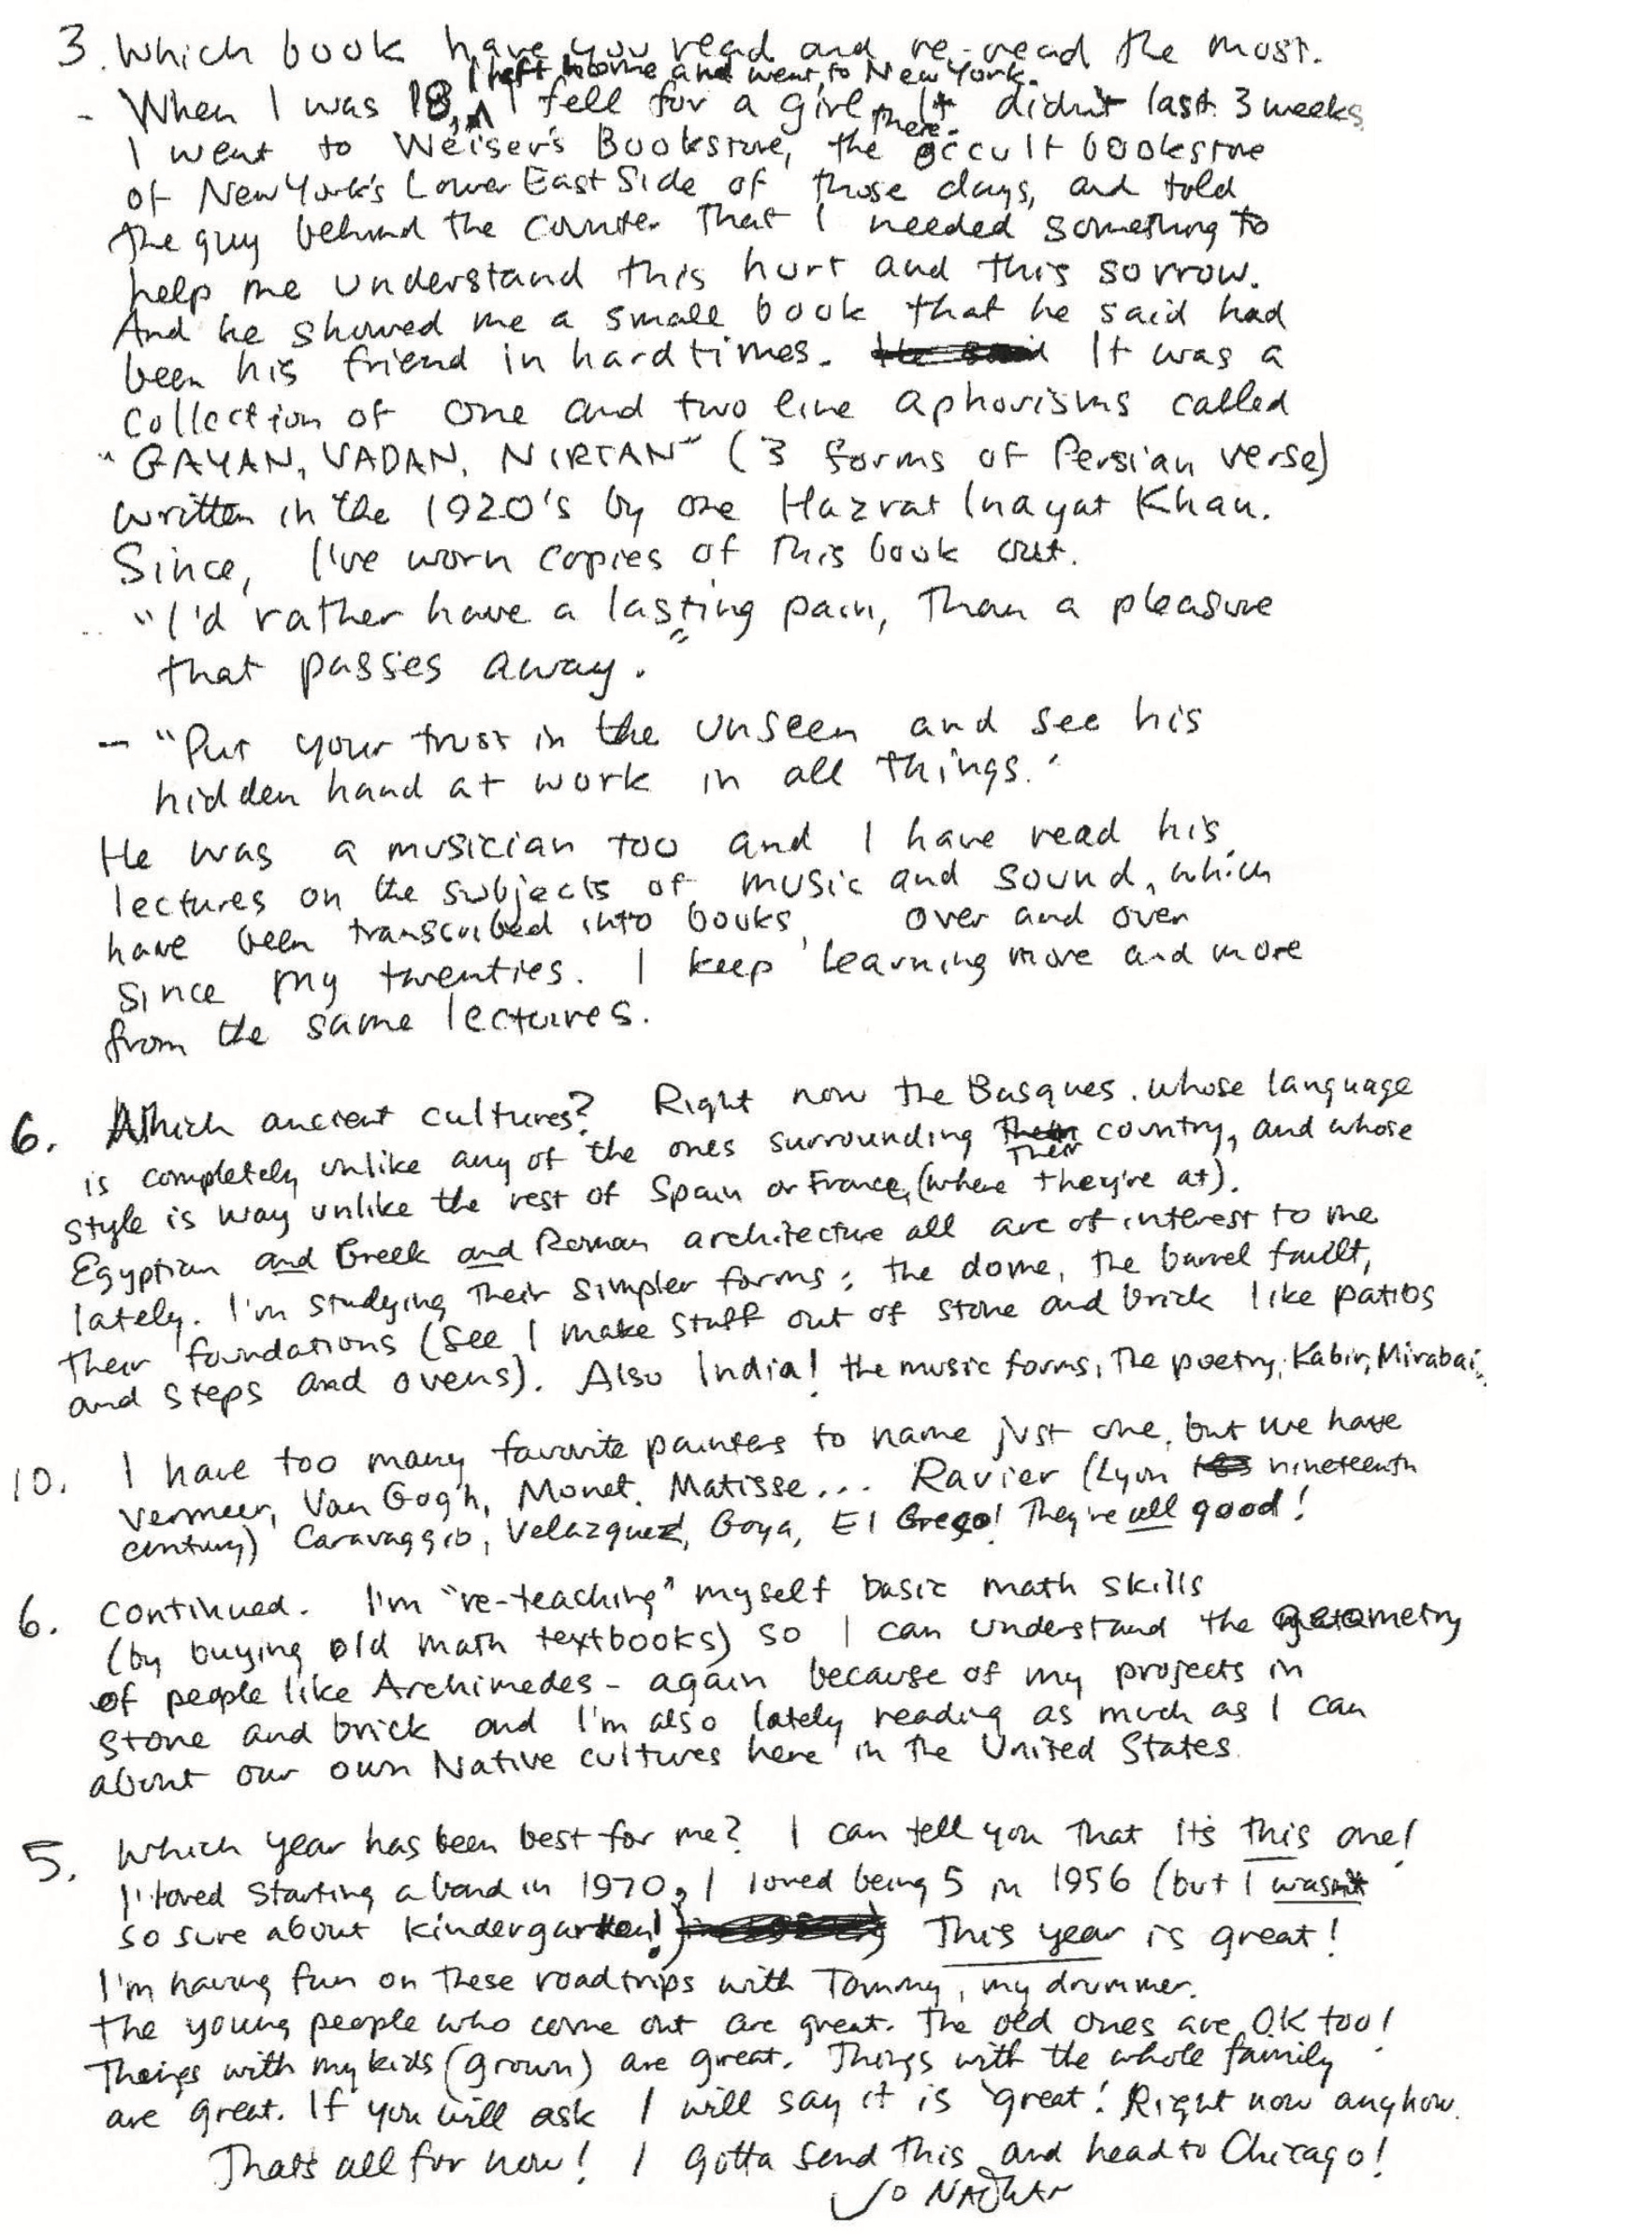 3. Which book have you read and re-read the most.
I left home and went to New York.
- When I was 18, ^ I fell for a girl there. It didn't last. 3 weeks
I went to Weiser's Bookstore, the occult bookstore
of New York's Lower East Side of those days, and told
the guy behind the counter that I needed something to
help me understand this hurt and this sorrow.
And he showed me a small book that he said had
been his friend in hard times. He said It was a
collection of one and two line aphorisms called
"GAYAN, VADAN, NIRTAN" (3 forms of Persian verse)
written in the 1920's by one Hazrat Inayat Khan.
Since, I've worn copies of this book out.
"I'd rather have a lasting pain, than a pleasure
that passes away."
- "Put your trust in the unseen and see his
hidden hand at work in all things."
He was a musician too and I have read his
lectures on the subjects of music and sound, which
have been transcribed into books, over and over
since my twenties. I keep learning more and more
from the same lectures.
6. Which ancient cultures? Right now the Basques. whose language
is completely unlike any of the ones surrounding their country, and whose
style is way unlike the rest of Spain or France, (where they're at).
Egyptian and Greek and Roman architecture all are of interest to me
lately. I'm studying their simpler forms; the dome, the barrel fault,
their foundations (see I make stuff out of stone and brick like patios
and steps and ovens). Also India! the music forms, the poetry; Kabir, Mirabai..
10. I have too many favorite painters to name just one, but we have
Vermeer, Van Gogh, Monet, Matisse... Ravier (Lyon nineteenth
century) Caravaggio, Velazquez, Goya, El Greco! They're all good!
6. continued. I'm "re-teaching" myself basic math skills
(by buying old math textbooks) so I can understand the geometry
of people like Archimedes - again because of my projects in
stone and brick and I'm also lately reading as much as I can
about our own Native cultures here in the United States.
5. Which year has been best for me? I can tell you that it's this one!
I loved starting a band in 1970, I loved being 5 in 1956 (but I wasn't
so sure about kindergarten!) This year is great!
I'm having fun on these roadtrips with Tommy, my drummer.
The young people who come out are great. The old ones are OK too!
Things with my kids (grown) are great. Things with the whole family
are great. If you will ask I will say it is great! Right now anyhow.
That's all for now! I gotta send this and head to Chicago!
Jo NATHAN